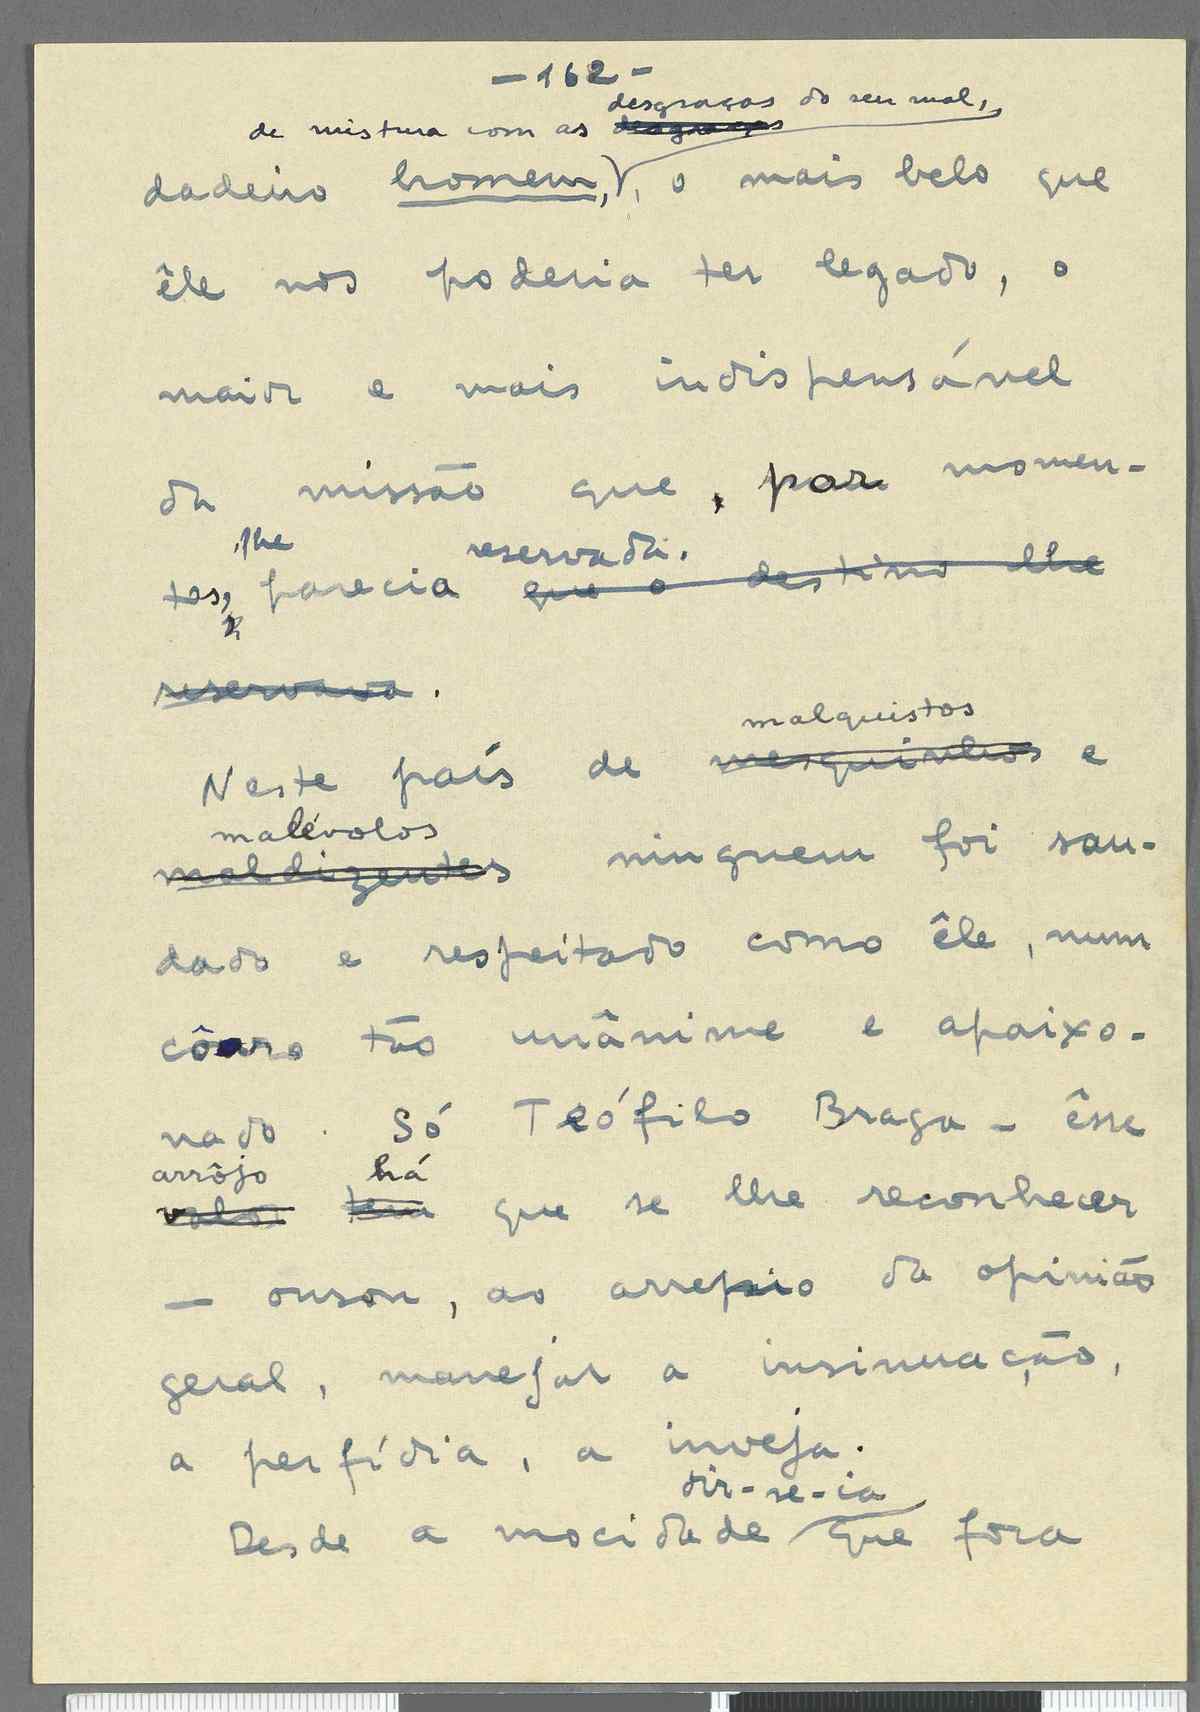 - 162 -
desgraças do seu mal,
de mistura com as desgraças
dadeiro homem, , o mais belo que
êle nos poderia ter legado, o
maior e mais indispensável
da missão que, por momen-
lhe reservada.
tos, parecia que o destino lhe
reservava.
malquistos
Neste país de mesquinhos e
malévolos
maldizentes ninguem foi sau-
dado e respeitado como êle, num
côaro tão unânime e apaixo-
nado. Só Teófilo Braga - êsse
arrôjo há
valor tem que se lhe reconhecer
- ousou, ao arrepio da opinião
geral, manejar a insinuação,
a perfídia, a inveja.
dir-se-ia
Desde a mocidade que fora